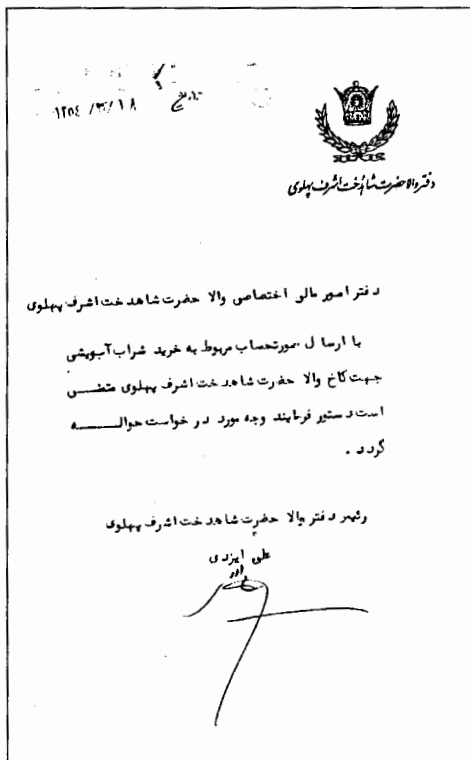 تاریخ ۱۸ / ۳ / ۱۳۵۴
دفتر والاحضرت شاهدخت اشرف پهلوی
دفتر امور مالی اختصاصی والا حضرت شاهدخت اشرف پهلوی
با ارسال صورتحساب مربوط به خرید شراب آبویشی
جهت کاخ والا حضرت شاهدخت اشرف پهلوی متقضـــی
است دستور فرمایند وجه مورد درخواست حوالـــــــه
گردد .
رئیس دفتر والا حضرت شاهدخت اشرف پهلوی
علی ایزدی